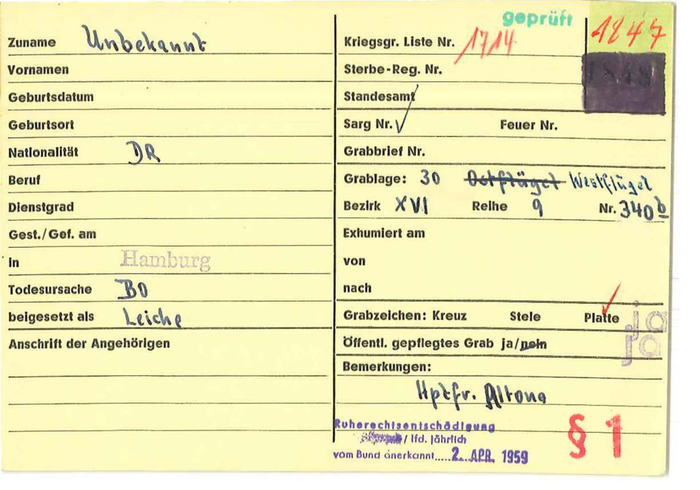 geprüft
1847
Zuname Unbekannt
Vornamen
Geburtsdatum
Geburtsort
Nationalität DR
Beruf
Dienstgrad
Gest./Gef. am
in Hamburg
Todesursache BO
beigesetzt als Leiche
Anschrift der Angehörigen
Kriegsgr. Liste Nr. 1714
Sterbe-Reg. Nr.
Standesamt
Sarg Nr. Feuer Nr.
Grabbrief Nr.
Grablage: 30 Ostflügel Westflügel
Bezirk XVI Reihe 9 Nr. 340b
Exhumiert am
von
nach
Grabzeichen: Kreuz Stele Platte
ja
Öffentl. gepflegtes Grab ja/nein
ja
Bemerkungen:
Hptfr. Altona
Ruherechtsentschädigung
/ lfd. jährlich
vom Bund anerkannt..... 2. APR. 1959
§ 1